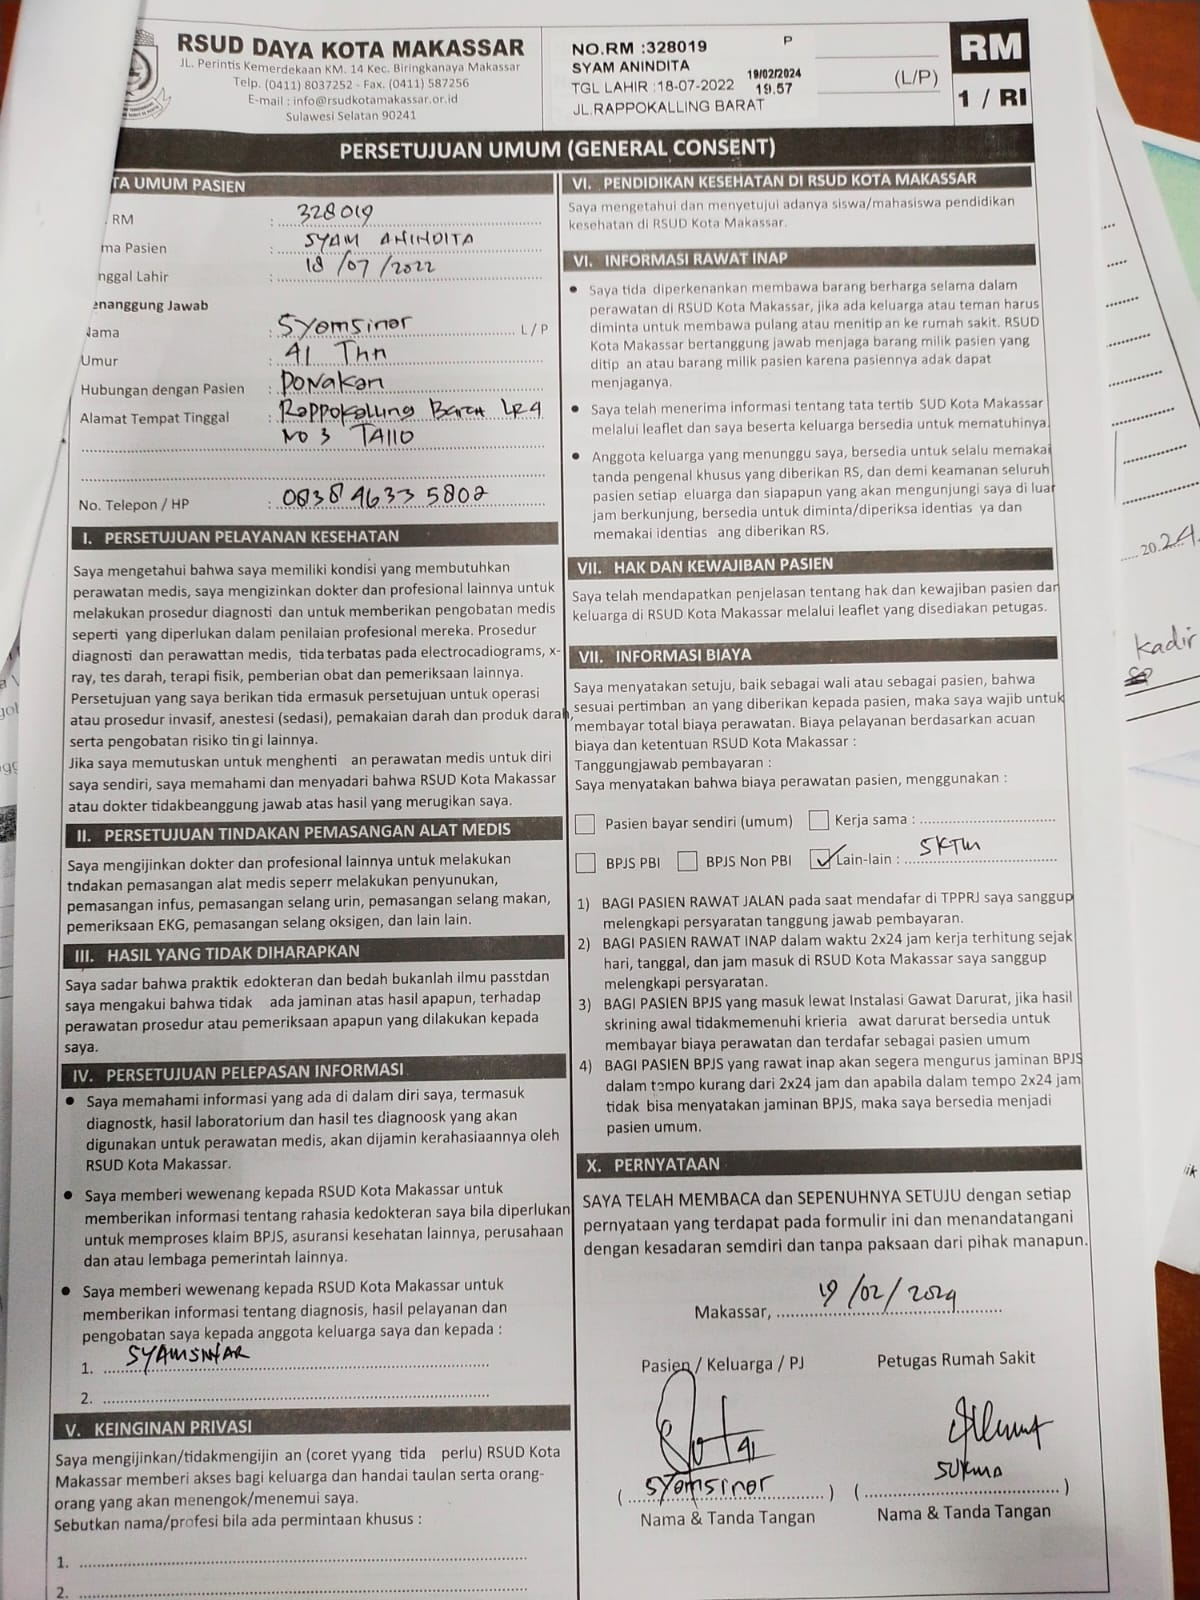 RSUD DAYA KOTA MAKASSAR
JL. Perintis Kemerdekaan KM. 14 Kec. Biringkanaya Makassar
Telp. (0411) 8037252 - Fax. (0411) 587256
E-mail : info@rsudkotamakassar.or.id
Sulawesi Selatan 90241
NO.RM :328019 P
SYAM ANINDITA
TGL LAHIR :18-07-2022 19/02/2024 19.57
JL.RAPPOKALLING BARAT
(L/P)
RM
1 / RI
PERSETUJUAN UMUM (GENERAL CONSENT)
TA UMUM PASIEN
RM : 328019
ma Pasien : SYAM ANINDITA
nggal Lahir : 18/07/2022
enanggung Jawab
Nama : Syamsinar L / P
Umur : 41 Thn
Hubungan dengan Pasien : Ponakan
Alamat Tempat Tinggal : Rappokalling Barat LR4
No 3 TAllO
No. Telepon / HP : 0838 4633 5802
I. PERSETUJUAN PELAYANAN KESEHATAN
Saya mengetahui bahwa saya memiliki kondisi yang membutuhkan
perawatan medis, saya mengizinkan dokter dan profesional lainnya untuk
melakukan prosedur diagnosti dan untuk memberikan pengobatan medis
seperti yang diperlukan dalam penilaian profesional mereka. Prosedur
diagnosti dan perawattan medis, tida terbatas pada electrocadiograms, x-
ray, tes darah, terapi fisik, pemberian obat dan pemeriksaan lainnya.
Persetujuan yang saya berikan tida ermasuk persetujuan untuk operasi
atau prosedur invasif, anestesi (sedasi), pemakaian darah dan produk darah,
serta pengobatan risiko tin gi lainnya.
Jika saya memutuskan untuk menghenti an perawatan medis untuk diri
saya sendiri, saya memahami dan menyadari bahwa RSUD Kota Makassar
atau dokter tidakbeanggung jawab atas hasil yang merugikan saya.
II. PERSETUJUAN TINDAKAN PEMASANGAN ALAT MEDIS
Saya mengijinkan dokter dan profesional lainnya untuk melakukan
tndakan pemasangan alat medis seperr melakukan penyunukan,
pemasangan infus, pemasangan selang urin, pemasangan selang makan,
pemeriksaan EKG, pemasangan selang oksigen, dan lain lain.
III. HASIL YANG TIDAK DIHARAPKAN
Saya sadar bahwa praktik edokteran dan bedah bukanlah ilmu passtdan
saya mengakui bahwa tidak ada jaminan atas hasil apapun, terhadap
perawatan prosedur atau pemeriksaan apapun yang dilakukan kepada
saya.
IV. PERSETUJUAN PELEPASAN INFORMASI
• Saya memahami informasi yang ada di dalam diri saya, termasuk
diagnostk, hasil laboratorium dan hasil tes diagnoosk yang akan
digunakan untuk perawatan medis, akan dijamin kerahasiaannya oleh
RSUD Kota Makassar.
• Saya memberi wewenang kepada RSUD Kota Makassar untuk
memberikan informasi tentang rahasia kedokteran saya bila diperlukan
untuk memproses klaim BPJS, asuransi kesehatan lainnya, perusahaan
dan atau lembaga pemerintah lainnya.
• Saya memberi wewenang kepada RSUD Kota Makassar untuk
memberikan informasi tentang diagnosis, hasil pelayanan dan
pengobatan saya kepada anggota keluarga saya dan kepada :
1. SYAMSINAR
2.
V. KEINGINAN PRIVASI
Saya mengijinkan/tidakmengijin an (coret yyang tida perlu) RSUD Kota
Makassar memberi akses bagi keluarga dan handai taulan serta orang-
orang yang akan menengok/menemui saya.
Sebutkan nama/profesi bila ada permintaan khusus :
1.
2.
VI. PENDIDIKAN KESEHATAN DI RSUD KOTA MAKASSAR
Saya mengetahui dan menyetujui adanya siswa/mahasiswa pendidikan
kesehatan di RSUD Kota Makassar.
VI. INFORMASI RAWAT INAP
• Saya tida diperkenankan membawa barang berharga selama dalam
perawatan di RSUD Kota Makassar, jika ada keluarga atau teman harus
diminta untuk membawa pulang atau menitip an ke rumah sakit. RSUD
Kota Makassar bertanggung jawab menjaga barang milik pasien yang
ditip an atau barang milik pasien karena pasiennya adak dapat
menjaganya.
• Saya telah menerima informasi tentang tata tertib SUD Kota Makassar
melalui leaflet dan saya beserta keluarga bersedia untuk mematuhinya.
• Anggota keluarga yang menunggu saya, bersedia untuk selalu memakai
tanda pengenal khusus yang diberikan RS, dan demi keamanan seluruh
pasien setiap eluarga dan siapapun yang akan mengunjungi saya di luar
jam berkunjung, bersedia untuk diminta/diperiksa identias ya dan
memakai identias ang diberikan RS.
VII. HAK DAN KEWAJIBAN PASIEN
Saya telah mendapatkan penjelasan tentang hak dan kewajiban pasien dan
keluarga di RSUD Kota Makassar melalui leaflet yang disediakan petugas.
VII. INFORMASI BIAYA
Saya menyatakan setuju, baik sebagai wali atau sebagai pasien, bahwa
sesuai pertimban an yang diberikan kepada pasien, maka saya wajib untuk
membayar total biaya perawatan. Biaya pelayanan berdasarkan acuan
biaya dan ketentuan RSUD Kota Makassar :
Tanggungjawab pembayaran :
Saya menyatakan bahwa biaya perawatan pasien, menggunakan :
Pasien bayar sendiri (umum) Kerja sama :
BPJS PBI BPJS Non PBI ✓ Lain-lain : SKTM
1) BAGI PASIEN RAWAT JALAN pada saat mendafar di TPPRJ saya sanggup
melengkapi persyaratan tanggung jawab pembayaran.
2) BAGI PASIEN RAWAT INAP dalam waktu 2x24 jam kerja terhitung sejak
hari, tanggal, dan jam masuk di RSUD Kota Makassar saya sanggup
melengkapi persyaratan.
3) BAGI PASIEN BPJS yang masuk lewat Instalasi Gawat Darurat, jika hasil
skrining awal tidakmemenuhi krieria awat darurat bersedia untuk
membayar biaya perawatan dan terdafar sebagai pasien umum
4) BAGI PASIEN BPJS yang rawat inap akan segera mengurus jaminan BPJS
dalam tempo kurang dari 2x24 jam dan apabila dalam tempo 2x24 jam
tidak bisa menyatakan jaminan BPJS, maka saya bersedia menjadi
pasien umum.
X. PERNYATAAN
SAYA TELAH MEMBACA dan SEPENUHNYA SETUJU dengan setiap
pernyataan yang terdapat pada formulir ini dan menandatangani
dengan kesadaran semdiri dan tanpa paksaan dari pihak manapun.
Makassar, 19/02/2024
Pasien / Keluarga / PJ Petugas Rumah Sakit
( Syamsinar ) ( SUKMA )
Nama & Tanda Tangan Nama & Tanda Tangan
2024
Kadir